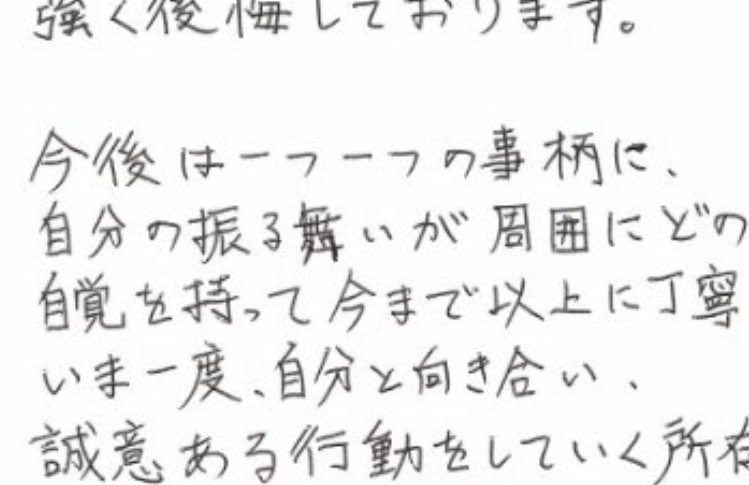 強く後悔しております。
今後は一つ一つの事柄に、
自分の振る舞いが周囲にどの
自覚を持って今まで以上に丁寧
いま一度、自分と向き合い、
誠意ある行動をしていく所在